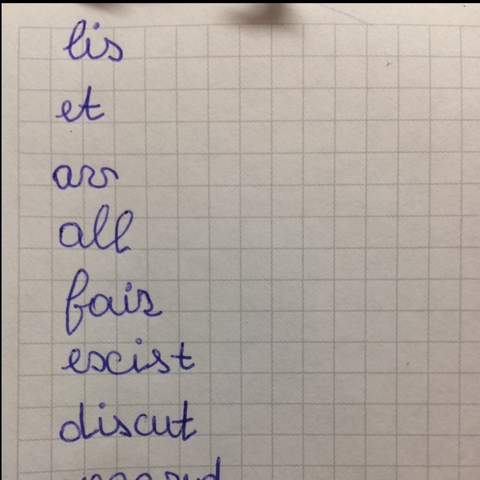 lis
et
arr
all
fais
exist
discut